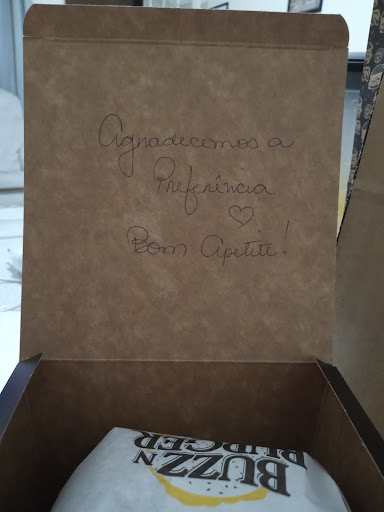 Agradecemos a
Preferência
Bom Apetite!
BUZZ N
BURGER